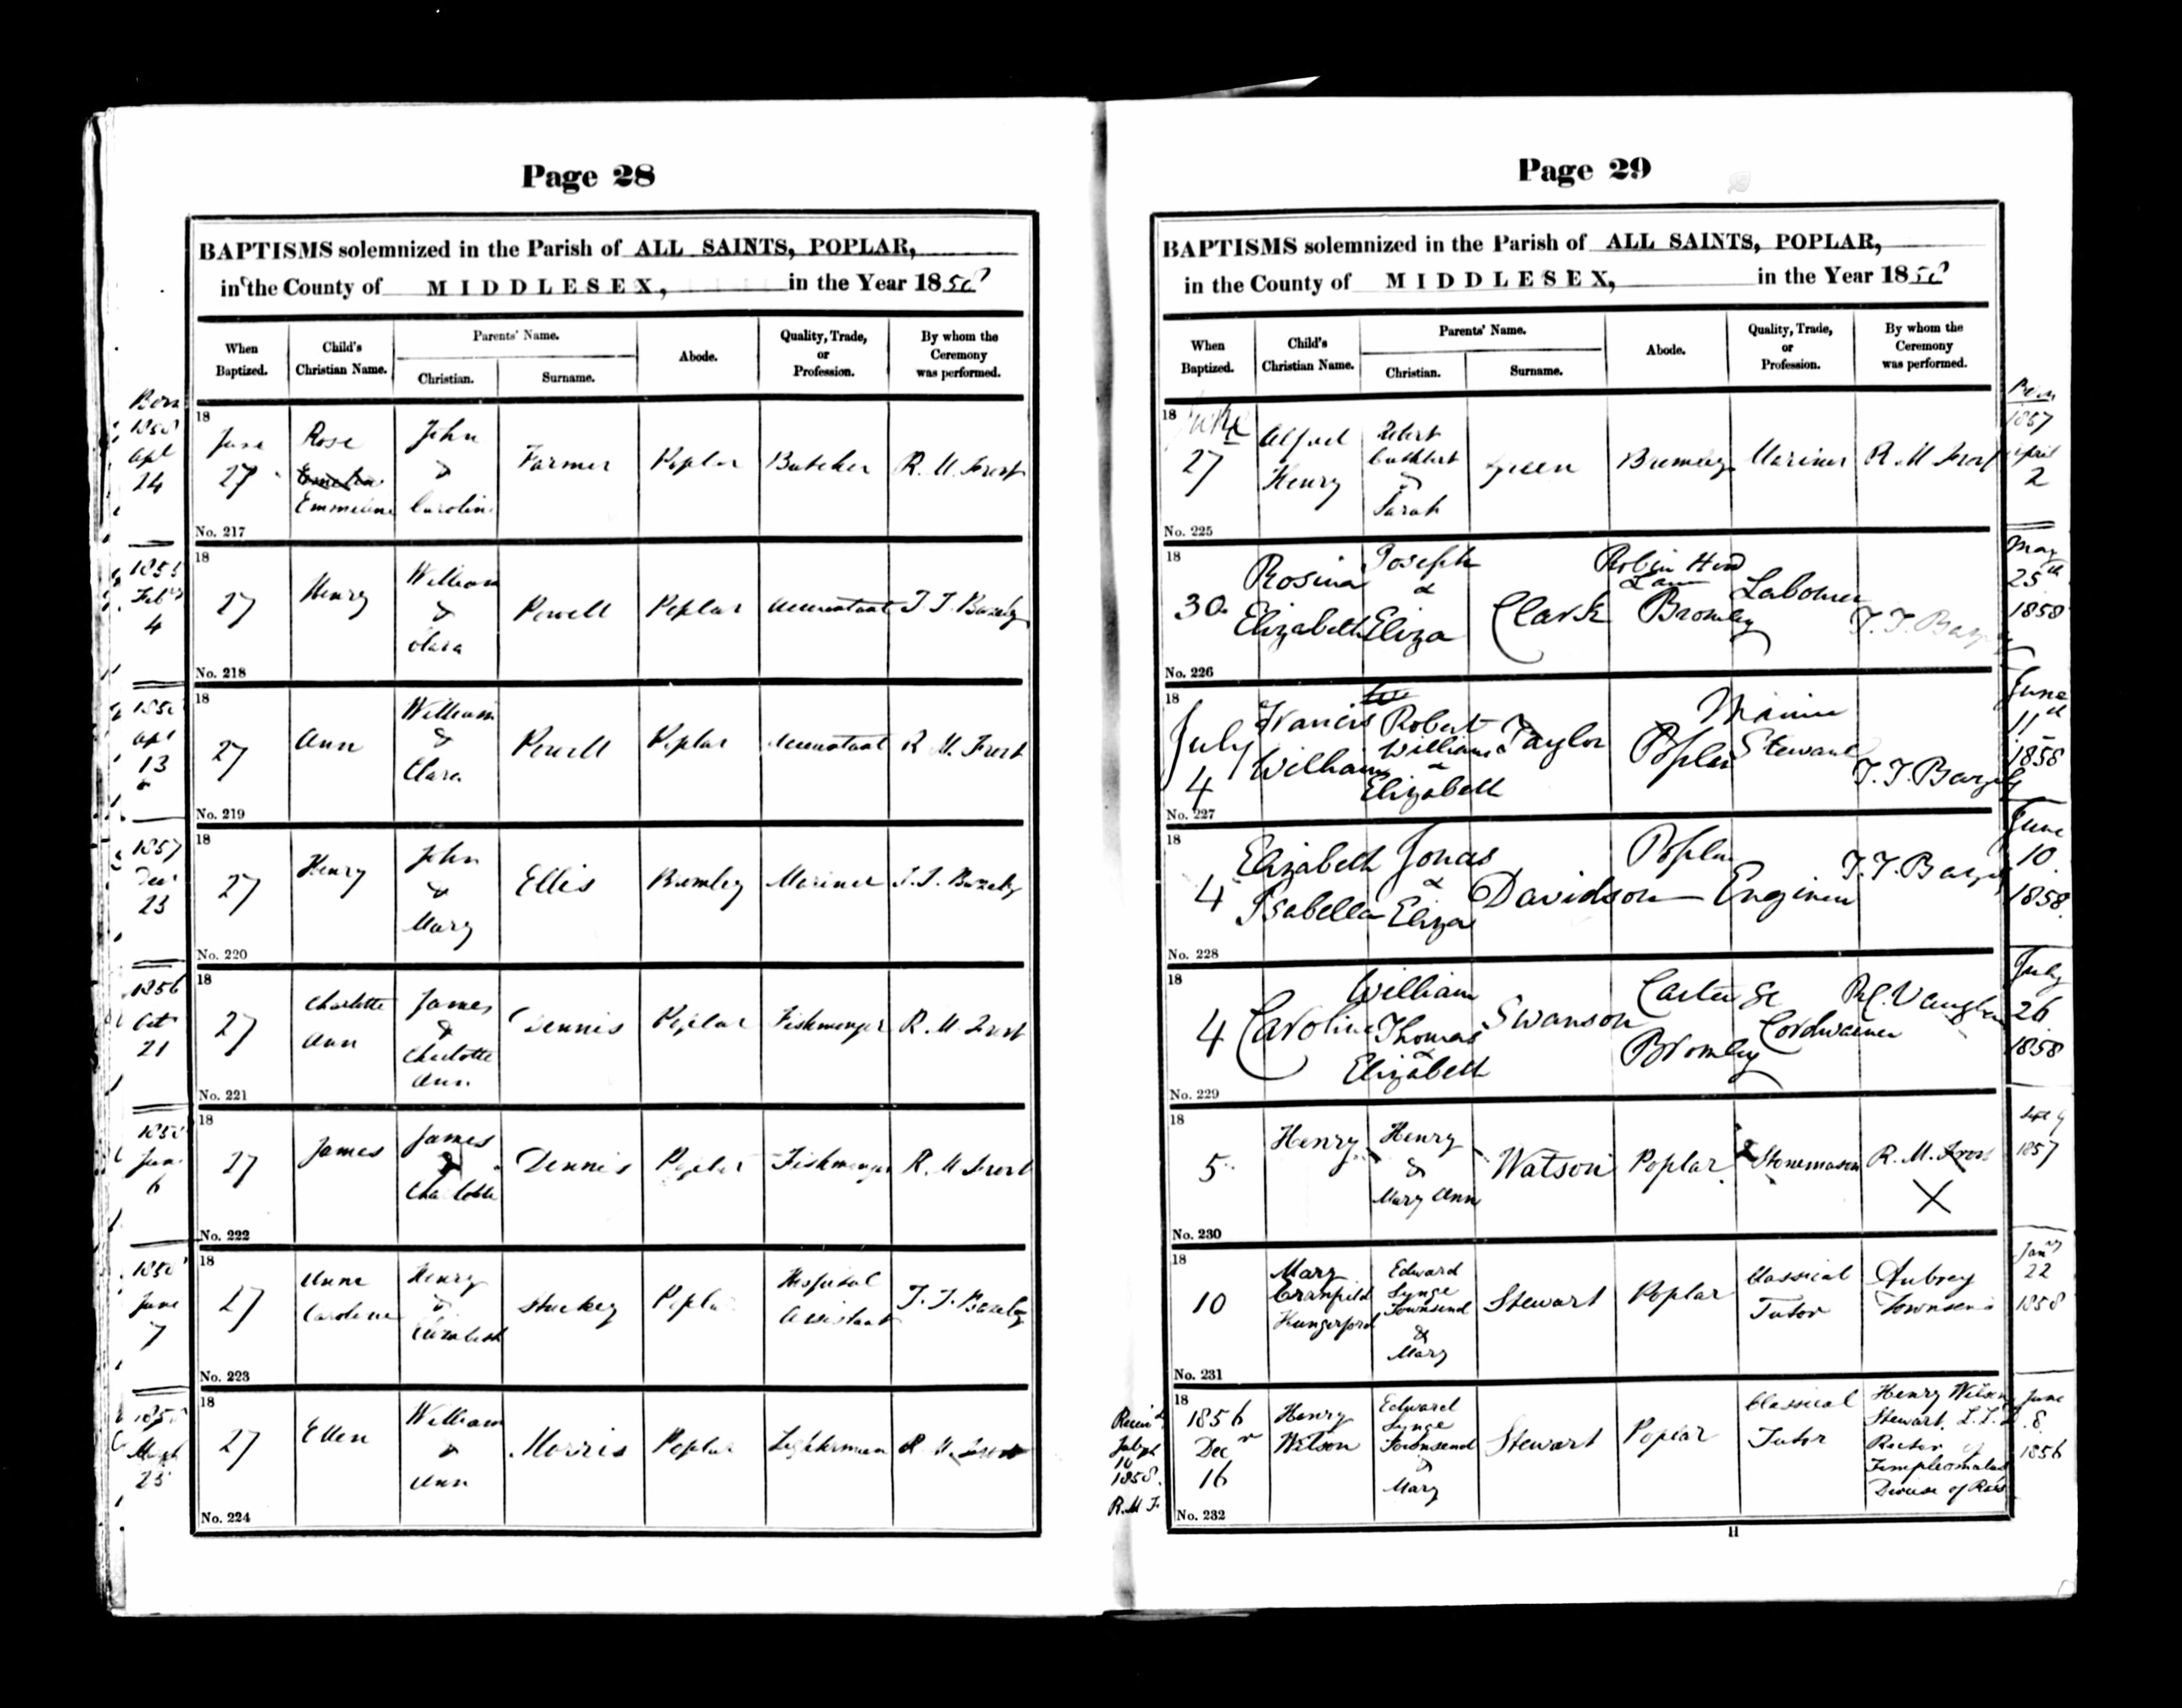 Page 28
BAPTISMS solemnized in the Parish of ALL SAINTS, POPLAR,
in the County of MIDDLESEX, in the Year 1858
When Baptized.
Child's Christian Name.
Parents' Name.
Christian.
Surname.
Abode.
Quality, Trade, or Profession.
By whom the Ceremony was performed.
Born
1858
Apl
24
18
June
27
Rose
Emmeline
John
&
Caroline
Farmer
Poplar
Butcher
R. M. Frost
No. 217
Feby
4
18
27
Henry
William
&
Clara
Powell
Poplar
Accountant
T. T. Bazely
No. 218
Apl
13
18
27
Ann
William
&
Clara
Powell
Poplar
Accountant
R. M. Frost
No. 219
1857
Decr
23
18
27
Henry
John
&
Mary
Ellis
Bromley
Mariner
T. T. Bazely
No. 220
1856
Oct
21
18
27
Charlotte
Ann
James
&
Charlotte
Ann
Dennis
Poplar
Fishmonger
R. M. Frost
No. 221
1858
6
18
27
James
James
&
Charlotte
Dennis
Poplar
Fishmonger
R. M. Frost
No. 222
1858
June
7
18
27
Anne
Caroline
Henry
&
Elizabeth
Stuckey
Poplar
Hospital
Assistant
T. T. Bazely
No. 223
18
27
Ellen
William
&
Ann
Morris
Poplar
Lighterman
R. M. Frost
No. 224
Page 29
BAPTISMS solemnized in the Parish of ALL SAINTS, POPLAR,
in the County of MIDDLESEX, in the Year 1858
When Baptized.
Child's Christian Name.
Parents' Name.
Christian.
Surname.
Abode.
Quality, Trade, or Profession.
By whom the Ceremony was performed.
Born
18
June
27
Alfred
Henry
Robert
Cuthbert
&
Sarah
Green
Bromley
Mariner
R. M. Frost
1857
April
2
No. 225
18
30
Rosina
Elizabeth
Joseph
&
Eliza
Clark
Robin Hood
Lane
Bromley
Labourer
T. T. Bazely
May
25th
1858
No. 226
18
July
4
Francis
William
Robert
William
&
Elizabeth
Taylor
Poplar
Marine
Steward
T. T. Bazely
June
11th
1858
No. 227
18
4
Elizabeth
Isabella
Jonas
&
Eliza
Davidson
Poplar
Engineer
T. T. Bazely
June
10
1858
No. 228
18
4
Caroline
William
Thomas
&
Elizabeth
Swanson
Carter St
Bromley
Cordwainer
Vaughan
July
26
1858
No. 229
18
5
Henry
Henry
&
Mary Ann
Watson
Poplar
Stonemason
R. M. Frost
X
Sept 9
1857
No. 230
18
10
Mary
Cranfield
Hungerford
Edward
Synge
Townsend
&
Mary
Stewart
Poplar
Classical
Tutor
Aubrey
Townsend
Jany
22
1858
No. 231
Receivd
July
10
1858
R. M. F.
18
1856
Decr
16
Henry
Wilson
Edward
Synge
Townsend
&
Mary
Stewart
Poplar
Classical
Tutor
Henry Wilson
Stewart,
Rector of
Diocese of
June
8
1856
No. 232
H